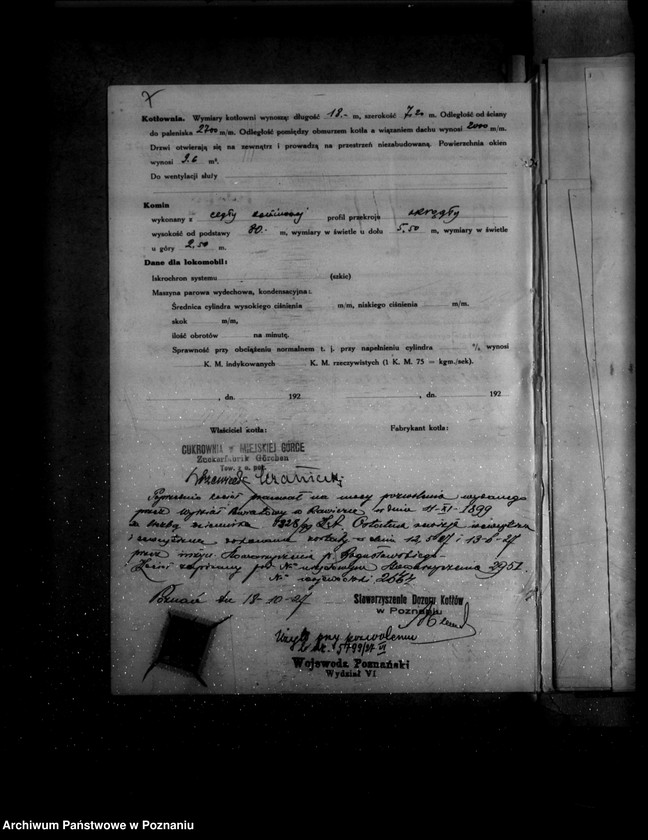 7
Kotłownia. Wymiary kotłowni wynoszą: długość 18.- m, szerokość 7,20 m. Odległość od ściany
do paleniska 2700 m/m. Odległość pomiędzy obmurzem kotła a wiązaniem dachu wynosi 2000 m/m.
Drzwi otwierają się na zewnętrz i prowadzą na przestrzeń niezabudowaną. Powierzchnia okien
wynosi 9.6 m².
Do wentylacji służy
Komin
wykonany z cegły kominowej profil przekroju okrągły
wysokość od podstawy 30.- m, wymiary w świetle u dołu 5,50 m, wymiary w świetle
u góry 2,50 m.
Dane dla lokomobil:
Iskrochron systemu (szkic)
Maszyna parowa wydechowa, kondensacyjna:
Średnica cylindra wysokiego ciśnienia m/m, niskiego ciśnienia m/m.
skok m/m,
ilość obrotów na minutę.
Sprawność przy obciążeniu normalnem t. j. przy napełnieniu cylindra % wynosi
K. M. indykowanych K. M. rzeczywistych (1 K. M. 75 = kgm./sek).
, dn. 192 , dn. 192
Właściciel kotła: Fabrykant kotła:
CUKROWNIA w MIEJSKIEJ GÓRCE
Zuckerfabrik Görchen
Tow. z o. por.
Poprzednio kocioł pracował na mocy pozwolenia wydanego
przez Wydział Powiatowy w Rawiczu w dniu 11-XI-1899
za liczbą dziennika 1328/99 Ostatnia rewizja wewnętrzna
i zewnętrzna dokonana została w dniu 12.5.27 i 13-6-27
przez inżyn. Stowarzyszenia p. Bogusławskiego.
Kocioł zapisany pod Nº Stowarzyszenia 2951.
Nº 2667
Poznań dn 18-10-27 Stowarzyszenie Dozoru Kotłów
w Poznaniu
przy pozwoleniu
5799/27 VI
Wojewoda Poznański
Wydział VI
Archiwum Państwowe w Poznaniu